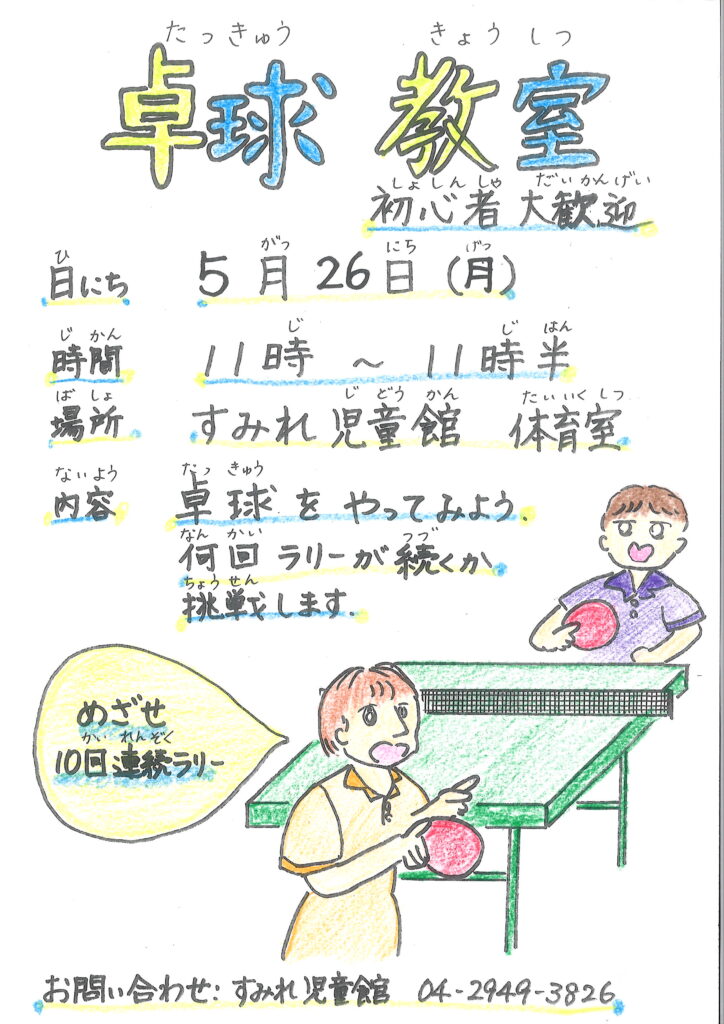 たっきゅう きょうしつ
卓球 教室
しょしんしゃ だいかんげい
初心者 大歓迎
ひ がつ にち げつ
日にち 5月26日(月)
じかん じ じ はん
時間 11時 ~ 11時半
ばしょ じどうかん たいいくしつ
場所 すみれ児童館 体育室
ないよう たっきゅう
内容 卓球をやってみよう.
なんかい つづ
何回ラリーが続くか
ちょうせん
挑戦します.
めざせ
かいれんぞく
10回連続ラリー
お問い合わせ: すみれ児童館 04-2949-3826